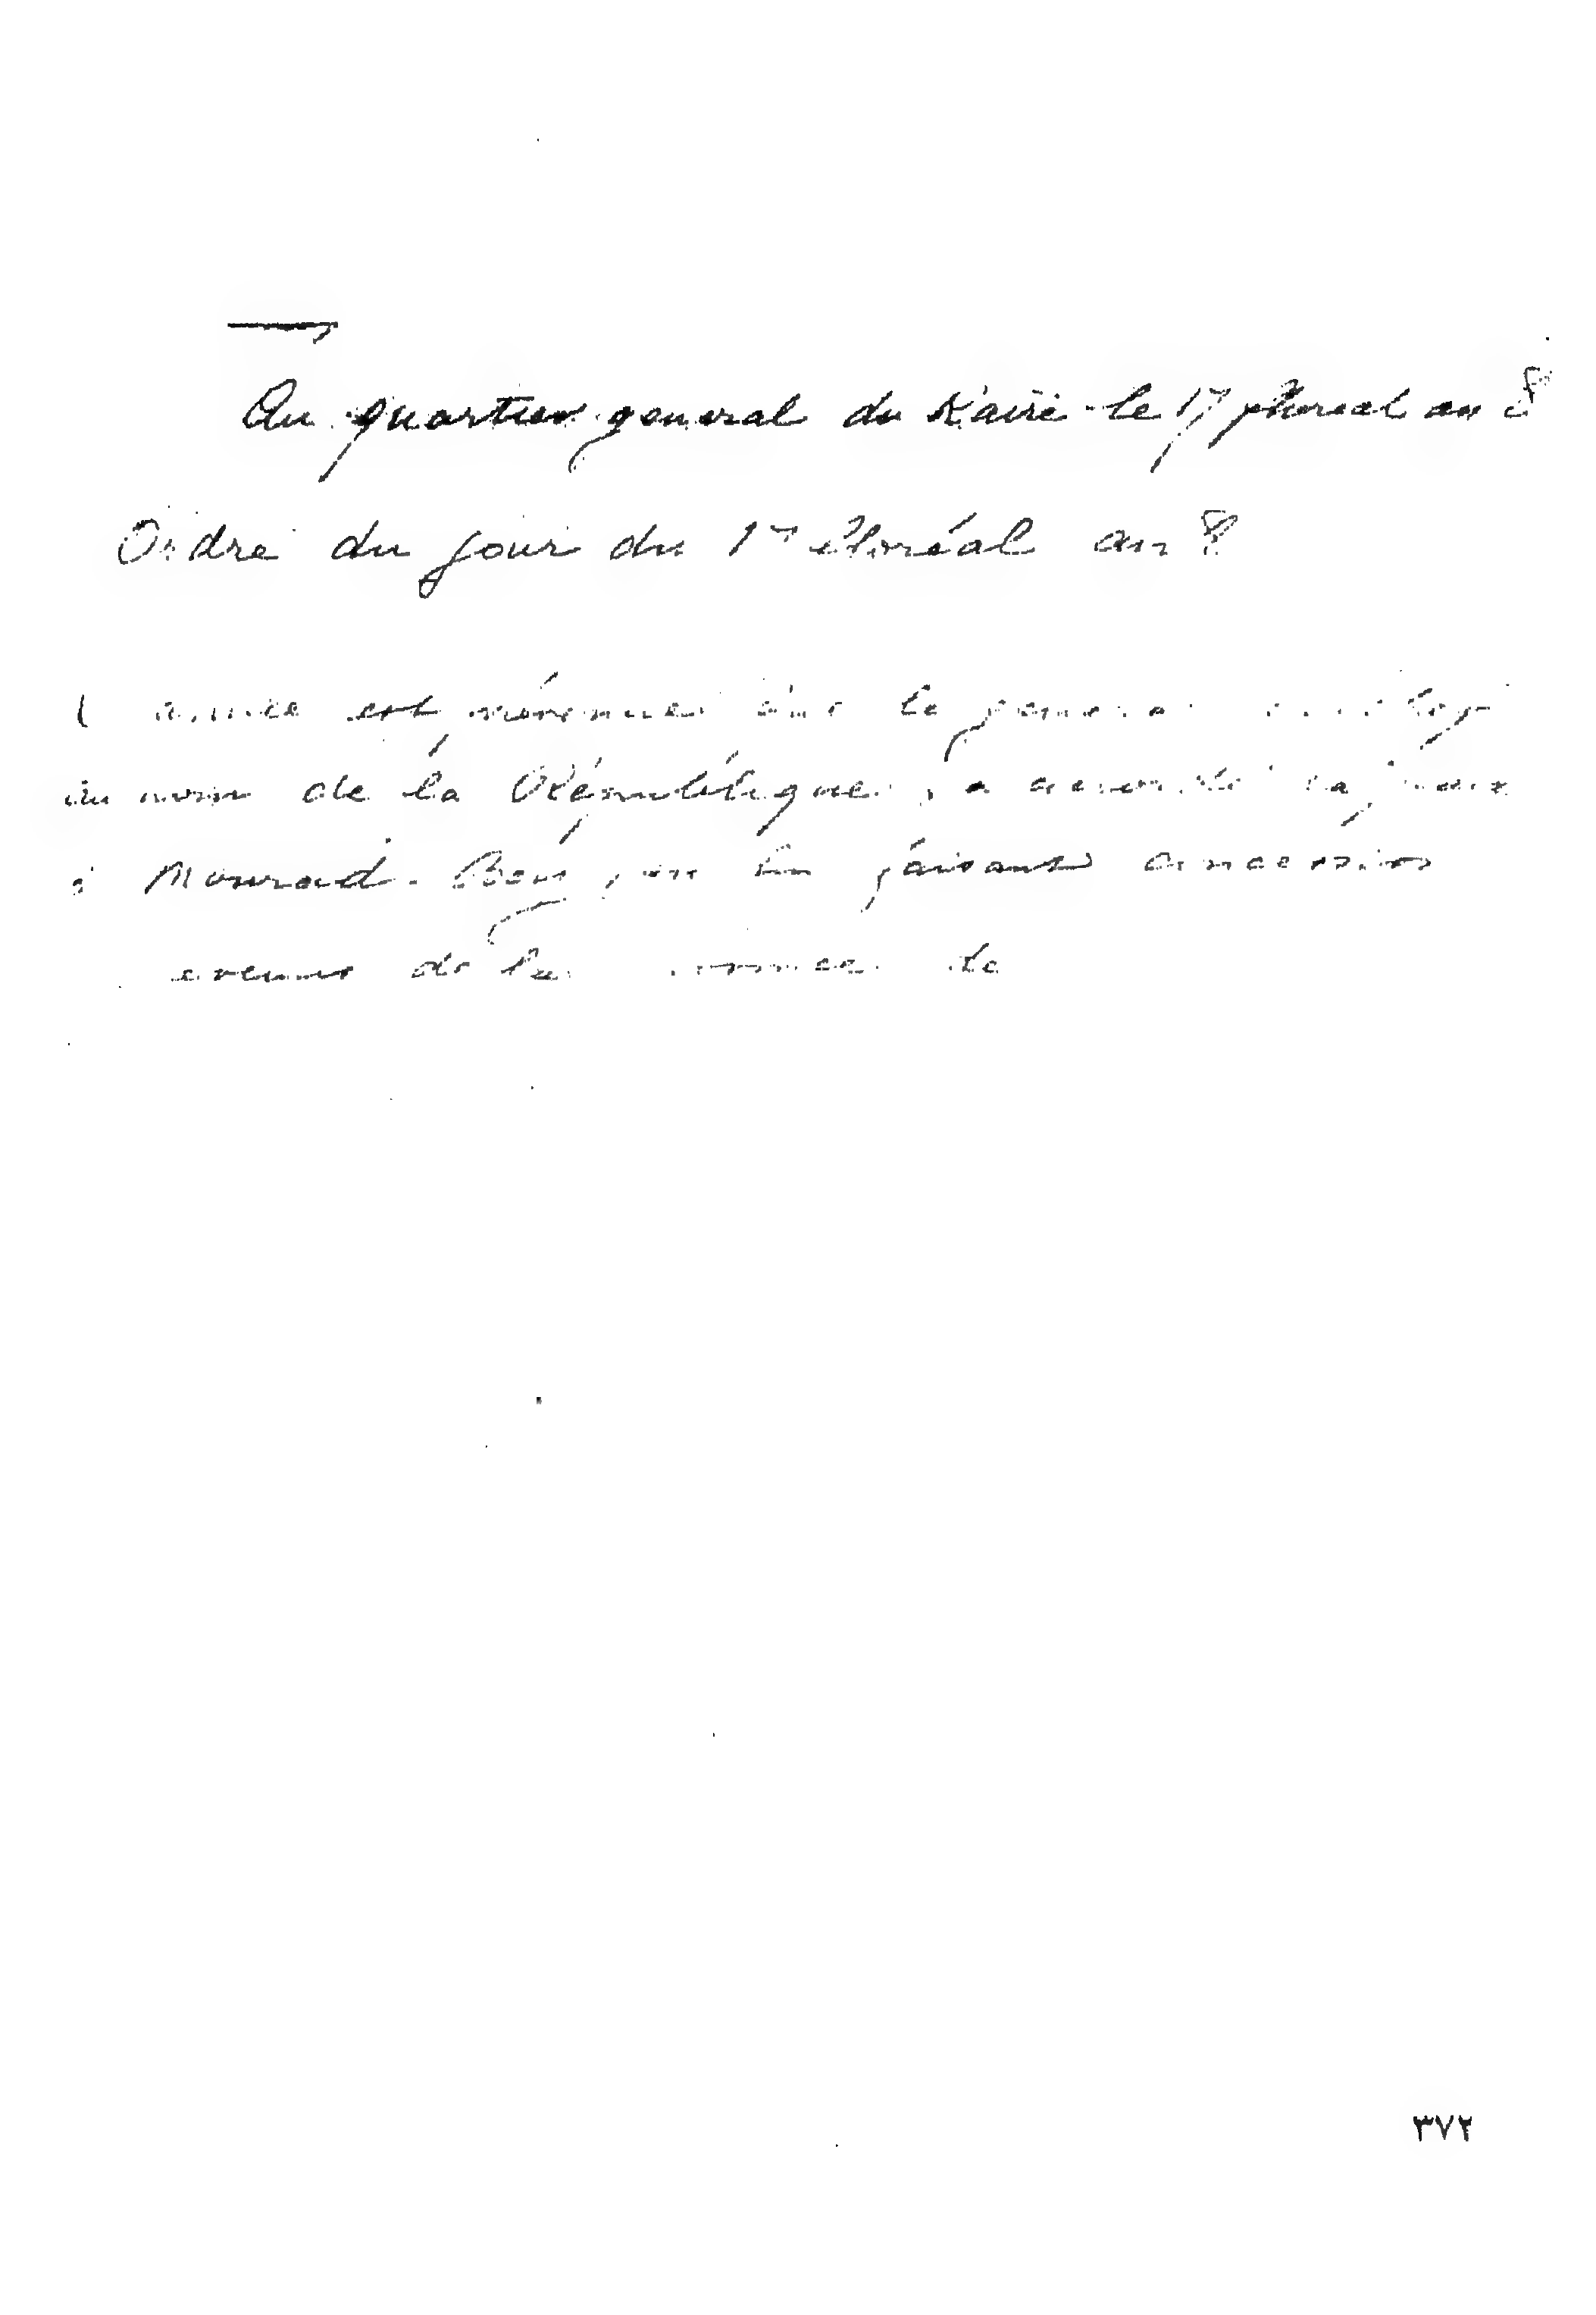 Au quartier general du Kaire le 17 floreal an 8
Ordre du jour du 17 floréal an 8
armée est prévenue que le general
au nom de la République, a accordé la paix
à Mourad-Bey, en lui faisant concession
revenus de la de
٣٧٢